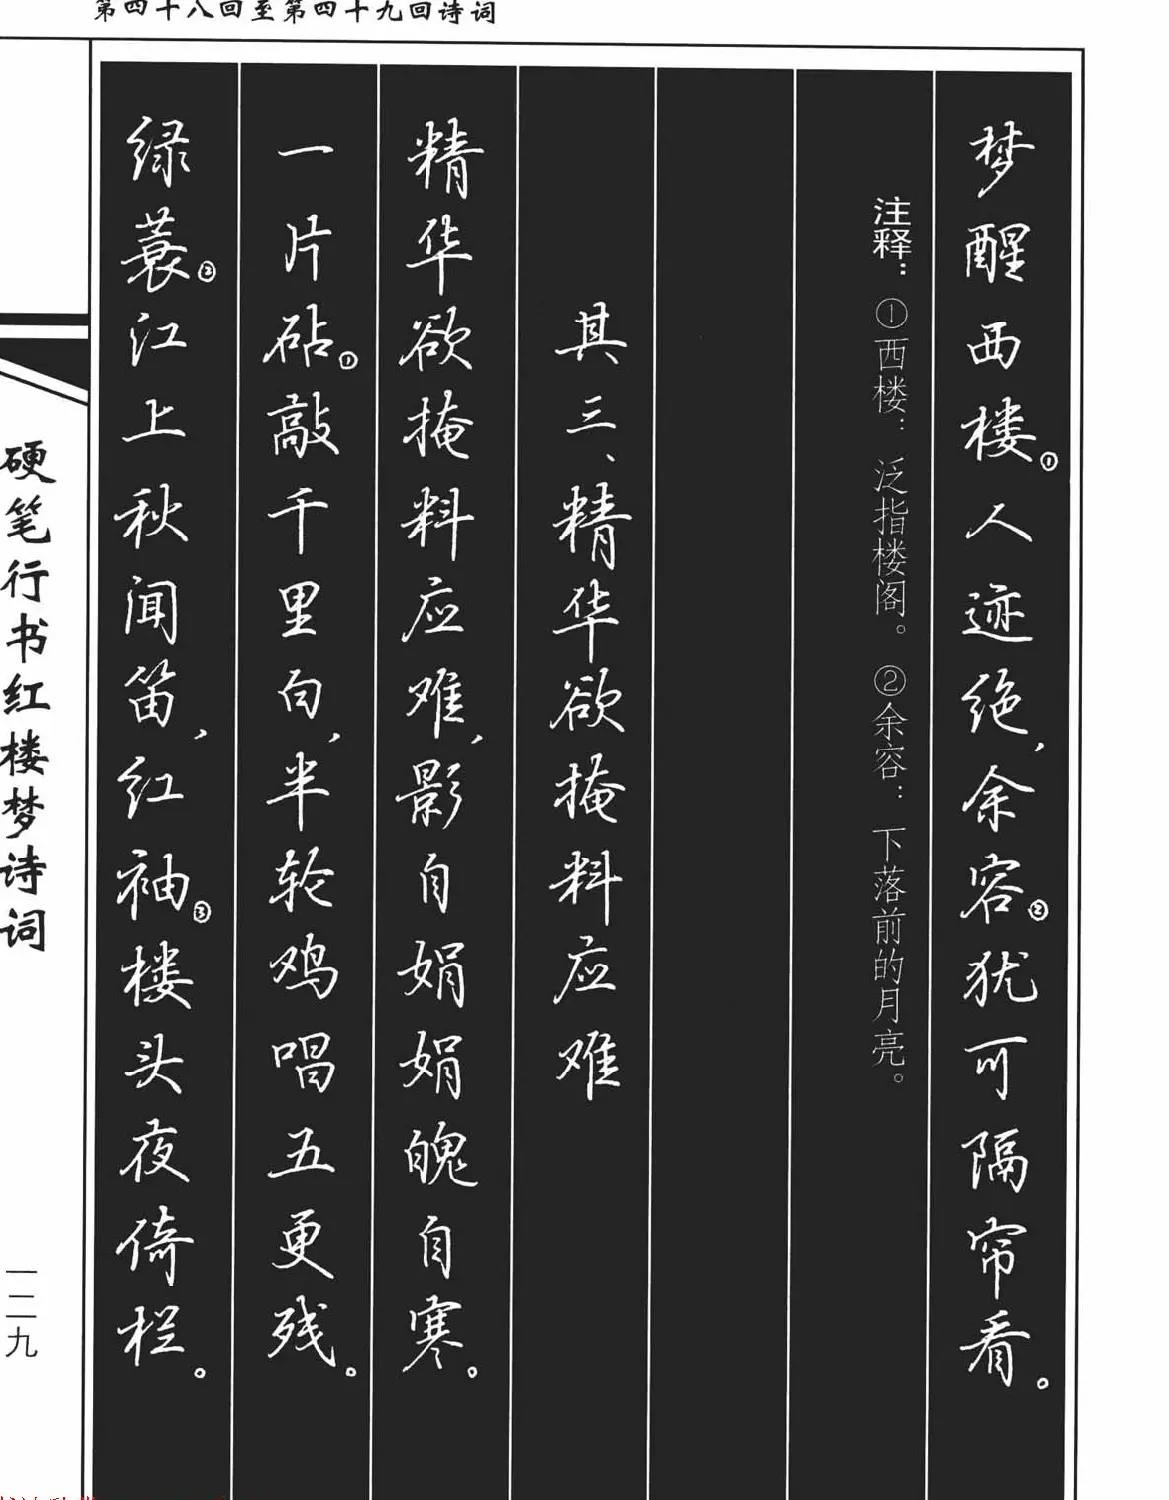 第四十八回至第四十九回诗词
梦醒西楼①人迹绝，余容②犹可隔帘看。
注释：①西楼：泛指楼阁。②余容：下落前的月亮。
其三、精华欲掩料应难
精华欲掩料应难，影自娟娟魄自寒。
一片砧①敲千里白，半轮鸡唱五更残。
绿蓑②江上秋闻笛，红袖③楼头夜倚栏。
硬笔行书红楼梦诗词
一二九